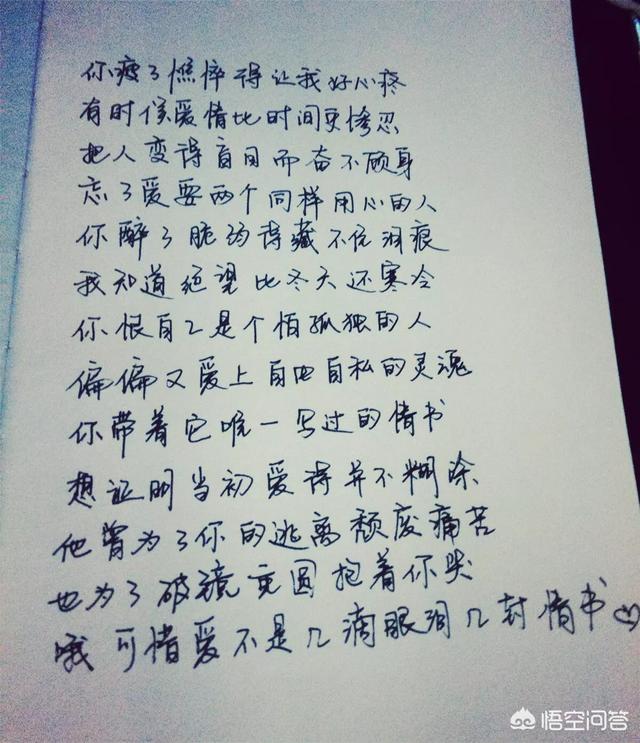 你瘦了憔悴得让我好心疼
有时候爱情比时间更惨忍
把人变得盲目而奋不顾身
忘了爱要两个同样用心的人
你醉了脆弱得藏不住泪痕
我知道绝望比冬天还寒冷
你恨自己是个怕孤独的人
偏偏又爱上自由自私的灵魂
你带着它唯一写过的情书
想证明当初爱得并不糊涂
他曾为了你的逃离颓废痛苦
也为了破镜重圆抱着你哭
哦可惜爱不是几滴眼泪几封情书♡
悟空问答